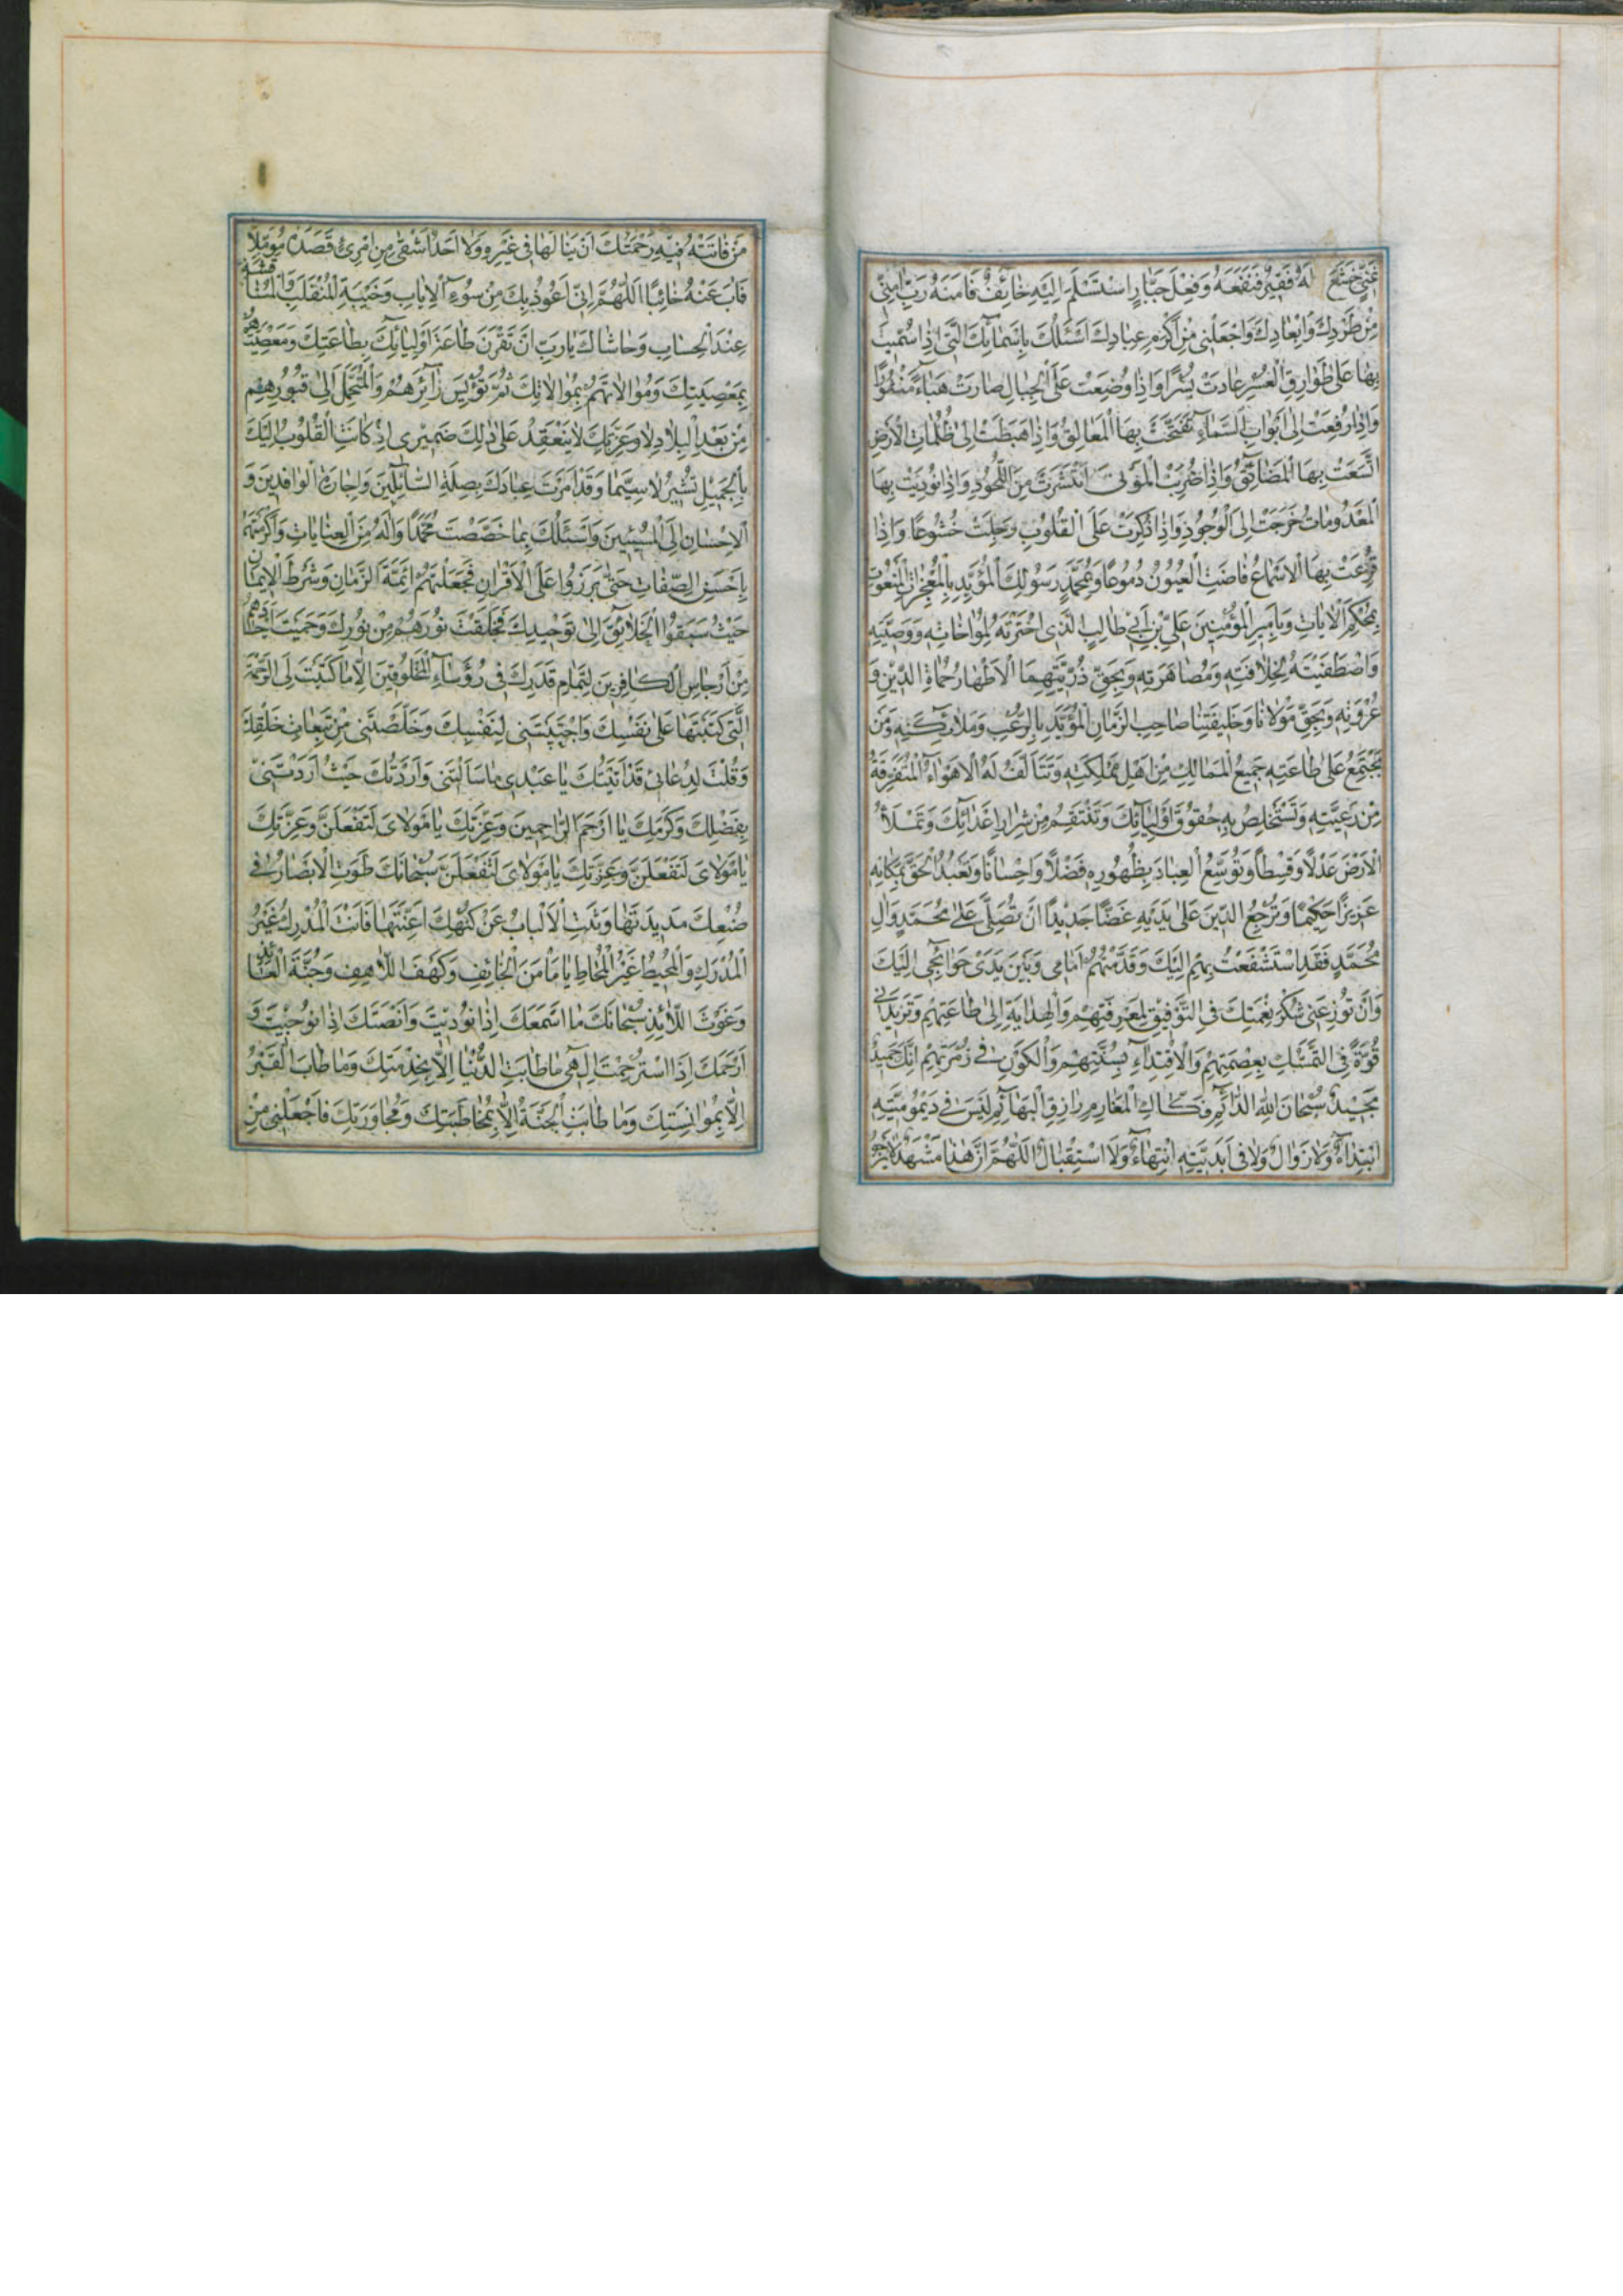 غَنِیٍّ خَضَعَ لَهُ فَقِیرٌ فَنَفَعَهُ وَفِعْلَ جَبَّارٍ اسْتَسْلَمَ إِلَیْهِ خَائِفٌ فَآمَنَهُ رَبِّ آمِنِّی
مِنْ طَرْدِكَ وَاِبْعَادِكَ وَاجْعَلْنِی مِنْ اَكْرَمِ عِبَادِكَ اَسْئَلُكَ بِاَسْمَائِكَ الَّتِی اِذَا سُمِّیَتْ
بِهَا عَلَی طَوَارِقِ الْعُسْرِ عَادَتْ یُسْرًا وَاِذَا وُضِعَتْ عَلَی الْجِبَالِ صَارَتْ هَبَاءً مَنْثُورًا
وَاِذَا رُفِعَتْ اِلَی اَبْوَابِ السَّمَاءِ تَفَتَّحَتْ بِهَا الْمَغَالِقُ وَاِذَا هَبَطَتْ اِلَی ظُلُمَاتِ الْاَرْضِ
اتَّسَعَتْ بِهَا الْمَضَائِقُ وَاِذَا ضُرِبَ الْمَوْتَی انْتَشَرَتْ مِنَ اللُّحُودِ وَاِذَا نُودِیَتْ بِهَا
الْمَعْدُومَاتُ خَرَجَتْ اِلَی الْوُجُودِ وَاِذَا ذُكِرَتْ عَلَی الْقُلُوبِ وَجِلَتْ خُشُوعًا وَاِذَا
قُرِعَتْ بِهَا الْاَسْمَاعُ فَاضَتِ الْعُیُونُ دُمُوعًا وَبِمُحَمَّدٍ رَسُولِكَ الْمُؤَیَّدِ بِالْمُعْجِزَاتِ الْمَنْعُوتِ
بِمُحْكَمِ الْاٰیَاتِ وَبِاَمِیرِ الْمُؤْمِنِینَ عَلِیِّ بْنِ اَبِی طَالِبٍ الَّذِی اخْتَرْتَهُ لِمُوَاخَاتِهِ وَوَصِیَّتِهِ
وَاصْطَفَیْتَهُ لِخِلَافَتِهِ وَمُصَاهَرَتِهِ وَبِحَقِّ ذُرِّیَّتِهِمَا الْاَطْهَارِ حُمَاةِ الدِّینِ وَ
عُرْوَتِهِ وَبِحَقِّ مَوْلَانَا وَخَلِیفَتِنَا صَاحِبِ الزَّمَانِ الْمُؤَیَّدِ بِالرُّعْبِ وَمَلَائِكَتِهِ وَمَنْ
تَجْتَمِعُ عَلَی طَاعَتِهِ جَمِیعُ الْمَمَالِكِ مِنْ اَهْلِ مَمْلِكَتِهِ وَتَتَاَلَّفُ لَهُ الْاَهْوَاءُ الْمُتَفَرِّقَةُ
مِنْ رَعِیَّتِهِ وَتَسْتَخْلِصُ بِهِ حُقُوقَ اَوْلِیَائِكَ وَتَنْتَقِمُ مِنْ شِرَارِ اَعْدَائِكَ وَتَمْلَاُ
الْاَرْضَ عَدْلًا وَقِسْطًا وَتُوَسِّعُ الْعِبَادَ بِظُهُورِهِ فَضْلًا وَاِحْسَانًا وَتُعِیدُ الْحَقَّ بِمَكَانِهِ
عَزِیزًا حَكِیمًا وَتُرْجِعُ الدِّینَ عَلَی یَدَیْهِ غَضًّا جَدِیدًا اَنْ تُصَلِّیَ عَلَی مُحَمَّدٍ وَآلِ
مُحَمَّدٍ فَقَدِ اسْتَشْفَعْتُ بِهِمْ اِلَیْكَ وَقَدَّمْتُهُمْ اَمَامِی وَبَیْنَ یَدَیْ حَوَائِجِی اِلَیْكَ
وَاَنْ تُوزِعَنِی شُكْرَ نِعْمَتِكَ فِی التَّوْفِیقِ لِمَعْرِفَتِهِمْ وَالْهِدَایَةِ اِلَی طَاعَتِهِمْ وَتَزِیدَنِی
قُوَّةً فِی التَّمَسُّكِ بِعِصْمَتِهِمْ وَالْاِقْتِدَاءِ بِسُنَّتِهِمْ وَالْكَوْنِ فِی زُمْرَتِهِمْ اِنَّكَ حَمِیدٌ
مَجِیدٌ سُبْحَانَ اللهِ الدَّائِمِ فَكَّاكِ الْمَغَارِمِ رَازِقِ الْبَهَائِمِ لَیْسَ فِی دَیْمُومِیَّتِهِ
ابْتِدَاءٌ وَلَا زَوَالٌ وَلَا فِی اَبَدِیَّتِهِ انْتِهَاءٌ وَلَا اسْتِقْبَالٌ اَللّٰهُمَّ اِنَّ هٰذَا مَشْهَدٌ لَا یَرْجُو
مَنْ فَاتَتْهُ فِیهِ رَحْمَتُكَ اَنْ یَنَالَهَا فِی غَیْرِهِ وَلَا اَحَدٌ اَشْقَی مِنِ امْرِئٍ قَصَدَهُ مُؤَمِّلًا
فَآبَ عَنْهُ خَائِبًا اَللّٰهُمَّ اِنِّی اَعُوذُ بِكَ مِنْ سُوءِ الْاِیَابِ وَخَیْبَةِ الْمُنْقَلَبِ وَالْمُنَاقَشَةِ
عِنْدَ الْحِسَابِ وَحَاشَاكَ یَا رَبِّ اَنْ تَقْرِنَ طَاعَةَ اَوْلِیَائِكَ بِطَاعَتِكَ وَمَعْصِیَتَهُمْ
بِمَعْصِیَتِكَ وَمُوَالَاتَهُمْ بِمُوَالَاتِكَ ثُمَّ تُؤْیِسَ زَائِرَهُمْ وَالْمُتَحَمِّلَ اِلَی قُبُورِهِمْ
مِنْ بَعْدِ الْبِلَادِ لَا وَعِزَّتِكَ لَا یَنْعَقِدُ عَلَی ذٰلِكَ ضَمِیرِی اِذْ كَانَتِ الْقُلُوبُ اِلَیْكَ
بِالْجَمِیلِ تُشِیرُ لَا سِیَّمَا وَقَدْ اَمَرْتَ عِبَادَكَ بِصِلَةِ السَّائِلِینَ وَاِجَازَةِ الْوَافِدِینَ وَ
الْاِحْسَانِ اِلَی الْمُسِیئِینَ وَاَسْئَلُكَ بِمَا خَصَّصْتَ مُحَمَّدًا وَآلَهُ مِنَ الْعِنَایَاتِ وَاَكْرَمْتَهُمْ
بِاَحْسَنِ الصِّفَاتِ حَتَّی بَرَزُوا عَلَی الْاَقْرَانِ فَجَعَلْتَهُمْ اَئِمَّةَ الزَّمَانِ وَشَرْطَ الْاِیمَانِ
حَیْثُ سَبَقُوا الْخَلَائِقَ اِلَی تَوْحِیدِكَ فَخَلَقْتَ نُورَهُمْ مِنْ نُورِكَ وَحَمَیْتَ اَجْدَادَهُمْ
مِنْ اَرْجَاسِ الْكَافِرِینَ لِتَمَامِ قَدَرِكَ فِی رُؤَسَاءِ الْمَخْلُوقِینَ اِلَّا مَا كَتَبْتَ لِی الرَّحْمَةَ
الَّتِی كَتَبْتَهَا عَلَی نَفْسِكَ وَاجْتَبَیْتَنِی لِنَفْسِكَ وَخَلَّصْتَنِی مِنْ تَبِعَاتِ خَلْقِكَ
وَقُلْتَ لِدُعَائِی قَدْ اٰتَیْتُكَ یَا عَبْدِی مَا سَاَلْتَنِی وَاَرَدْتُكَ حَیْثُ اَرَدْتَنِی
بِفَضْلِكَ وَكَرَمِكَ یَا اَرْحَمَ الرَّاحِمِینَ وَعِزَّتِكَ یَا مَوْلَایَ لَتَفْعَلَنَّ وَعِزَّتِكَ
یَا مَوْلَایَ لَتَفْعَلَنَّ وَعِزَّتِكَ یَا مَوْلَایَ لَتَفْعَلَنَّ سُبْحَانَكَ طَوَتِ الْاَبْصَارُ فِی
صُنْعِكَ مَدِیدَتَهَا وَثَنَتِ الْاَلْبَابُ عَنْ كُنْهِكَ اَعِنَّتَهَا فَاَنْتَ الْمُدْرِكُ غَیْرُ
الْمُدْرَكِ وَالْمُحِیطُ غَیْرُ الْمُحَاطِ یَا مَأْمَنَ الْخَائِفِ وَكَهْفَ اللَّاهِفِ وَجُنَّةَ الْعَائِذِ
وَغَوْثَ اللَّائِذِ سُبْحَانَكَ مَا اَسْمَعَكَ اِذَا نُودِیتَ وَاَنْصَتَكَ اِذَا نُوجِیتَ وَ
اَرْحَمَكَ اِذَا اسْتُرْحِمْتَ اِلٰهِی مَا طَابَتِ الدُّنْیَا اِلَّا بِخِدْمَتِكَ وَمَا طَابَ الْقَبْرُ
اِلَّا بِمُوَانَسَتِكَ وَمَا طَابَتِ الْجَنَّةُ اِلَّا بِمُخَاطَبَتِكَ وَمُجَاوَرَتِكَ فَاجْعَلْنِی مِنْ